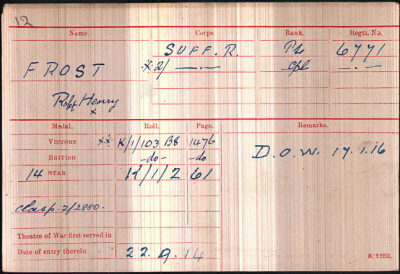 12
Name. Corps. Rank. Regtl. No.
FROST SUFF. R. Pte 6771
x 2/ —·— Cpl —·—
Robt Henry
x
Medal. Roll. Page. Remarks.
VICTORY xx K/1/103 B8 1476
BRITISH -do- -do
D.O.W. 17.1.16
14 STAR K/1/2 61
Clasp. 2/2880.
Theatre of War first served in
Date of entry therein 22. A. 14
K. 1380.